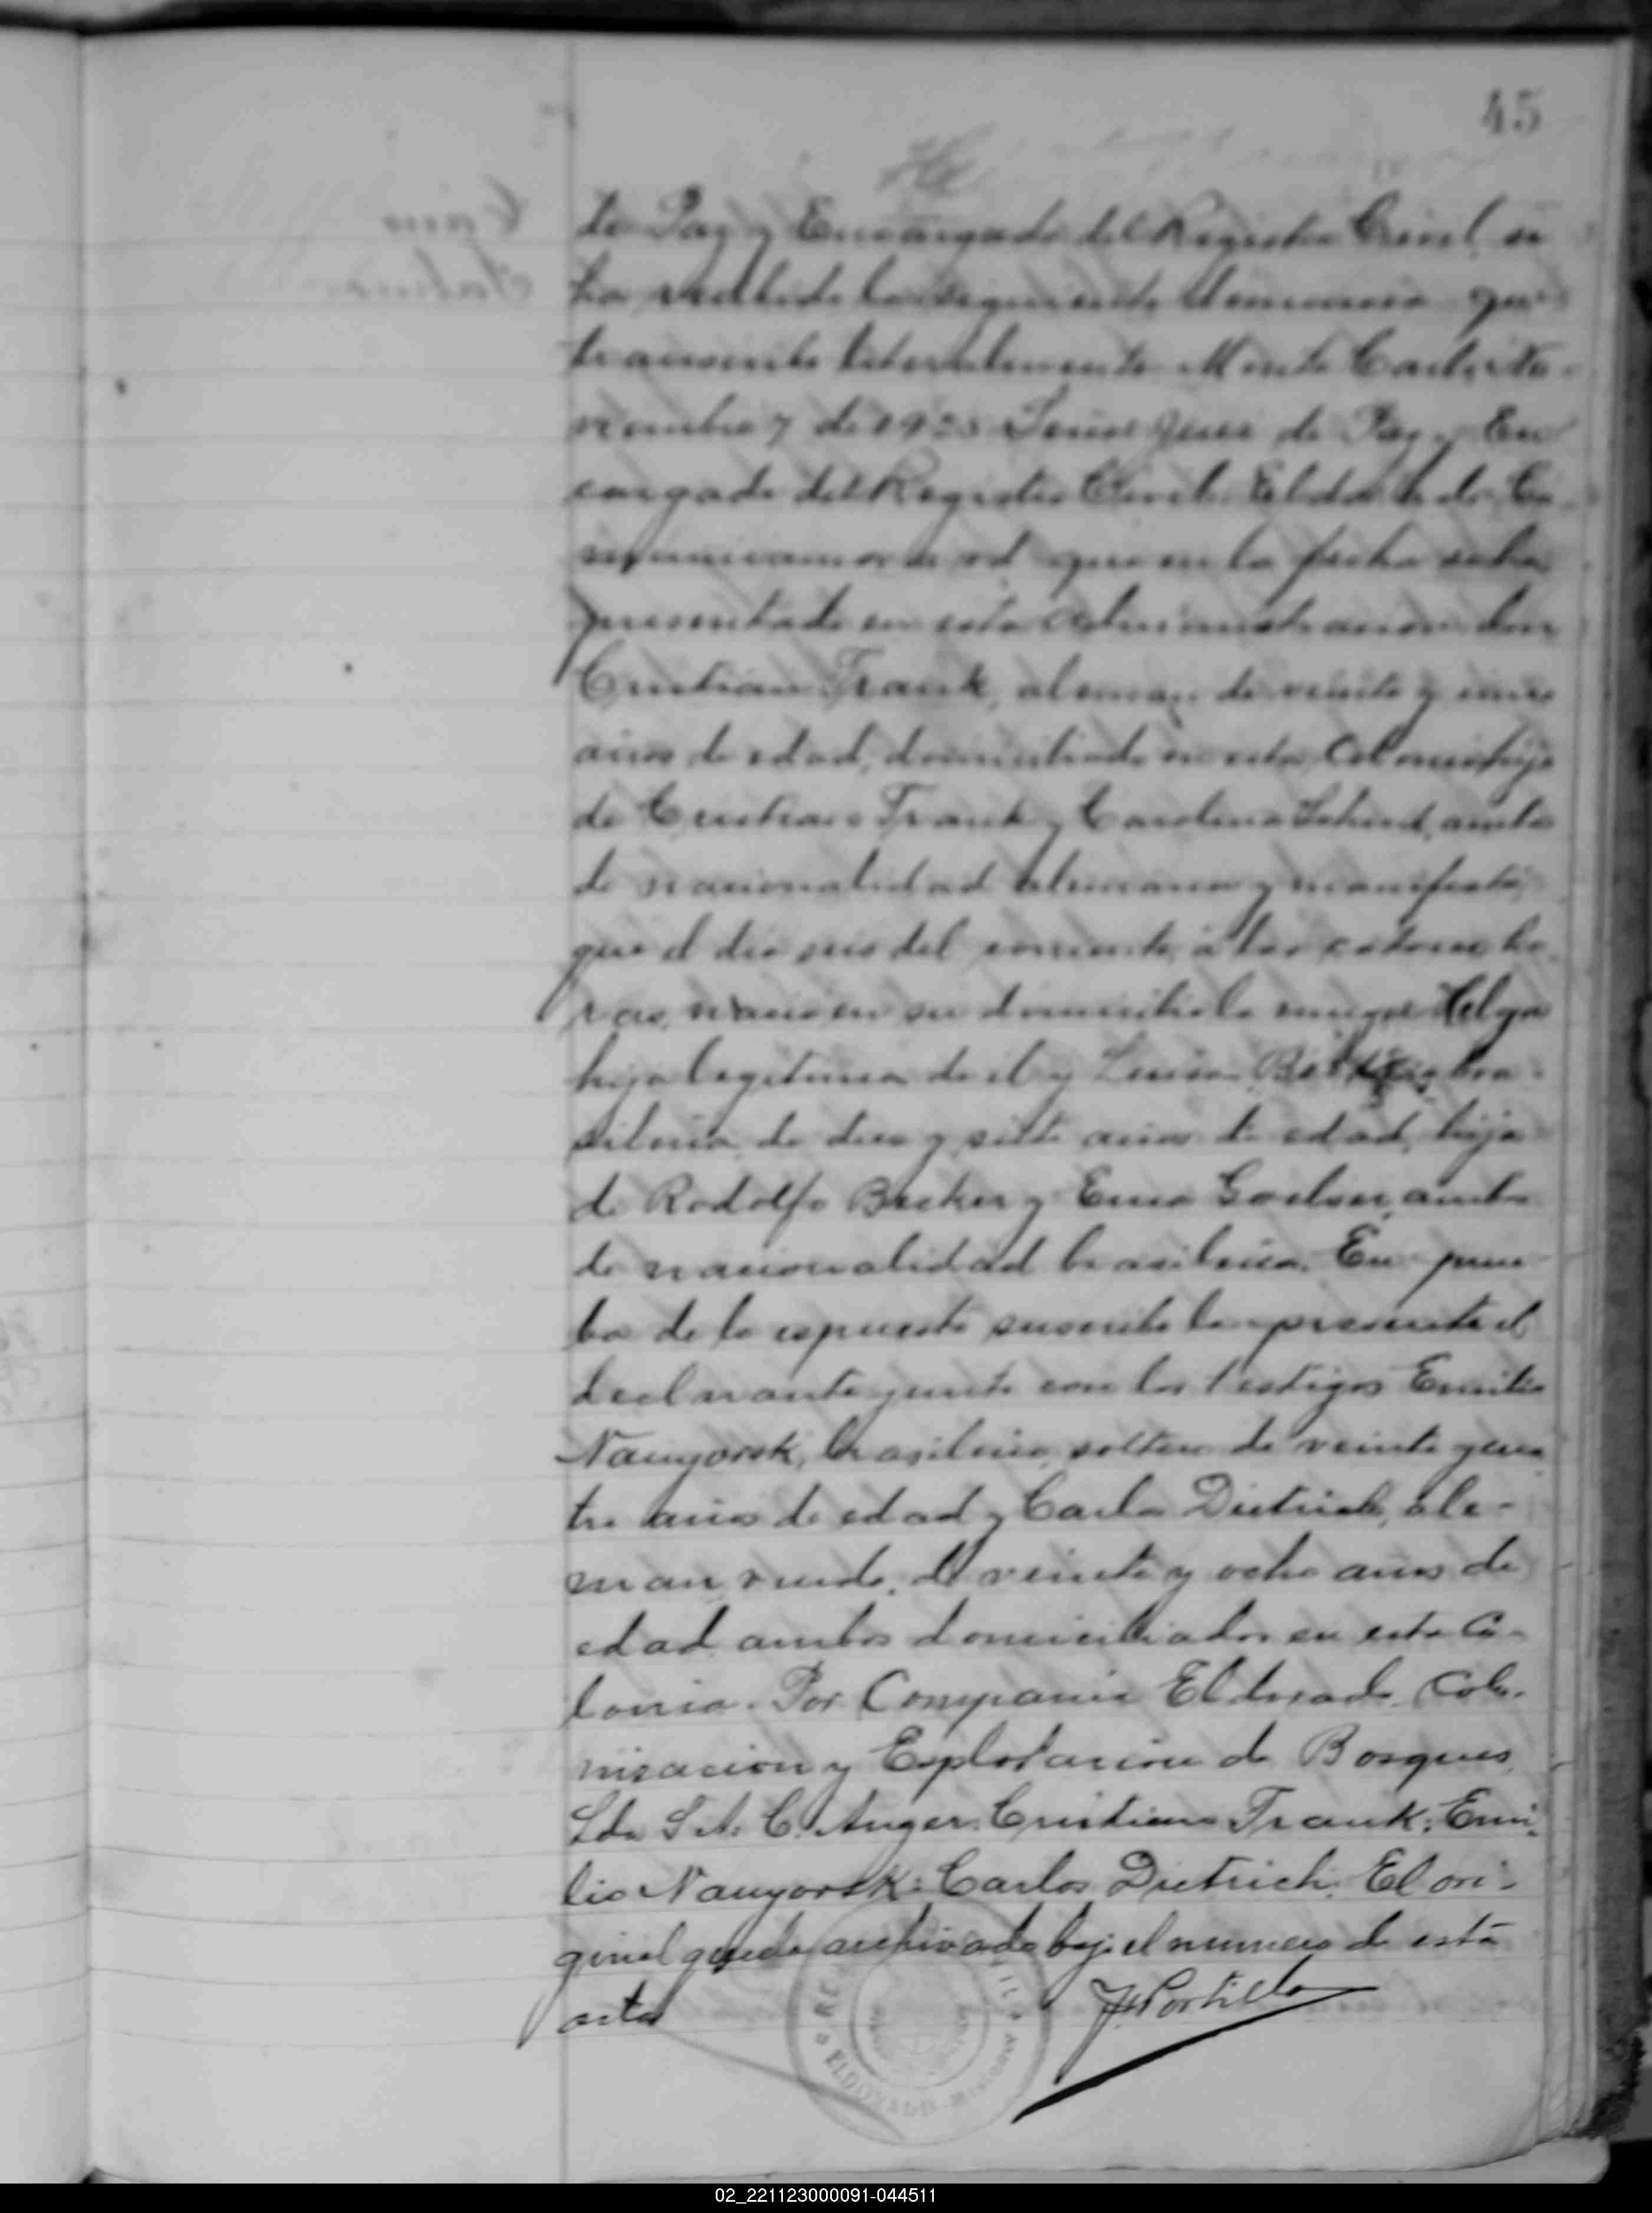 45
de Paz y Encargado del Registro Civil, se
ha recibido la siguiente denuncia que
transcribo literalmente Monte Carlo No-
viembre 7 de 1925 Señor Juez de Paz y En
cargado del Registro Civil. Eldorado. Co-
municamos a Vd que en la fecha se ha
presentado en esta Administracion don
Cristian Frank, aleman de veinte y
años de edad, domiciliado en esta Colonia hijo
de Cristian Frank y Carolina ambos
de nacionalidad alemana y manifestó
que el dia seis del corriente, á las catorce ho-
ras, nació en su domicilio la mujer Helga
hija legitima de él y Luisa bra-
sileña, de diez y siete años de edad, hija
de Rodolfo Becker y Ema ambos
de nacionalidad brasileña. En prue-
ba de lo expuesto suscribe la presente el
declarante junto con los testigos Emilio
Nauyorsk, brasileño, soltero de veinte y cua
tro años de edad y Carlos Dietrich, ale-
man viudo, de veinte y ocho años de
edad ambos domiciliados en esta Co-
lonia. Por Compania Eldorado Colo-
nizacion y Explotacion de Bosques
Lda S. A. C. Auger. Cristian Frank: Emi-
lio Nauyorsk: Carlos Dietrich. El ori-
ginal queda archivado bajo el numero de esta
acta
Portillo
ELDORADO Misiones
02_221123000091-044511